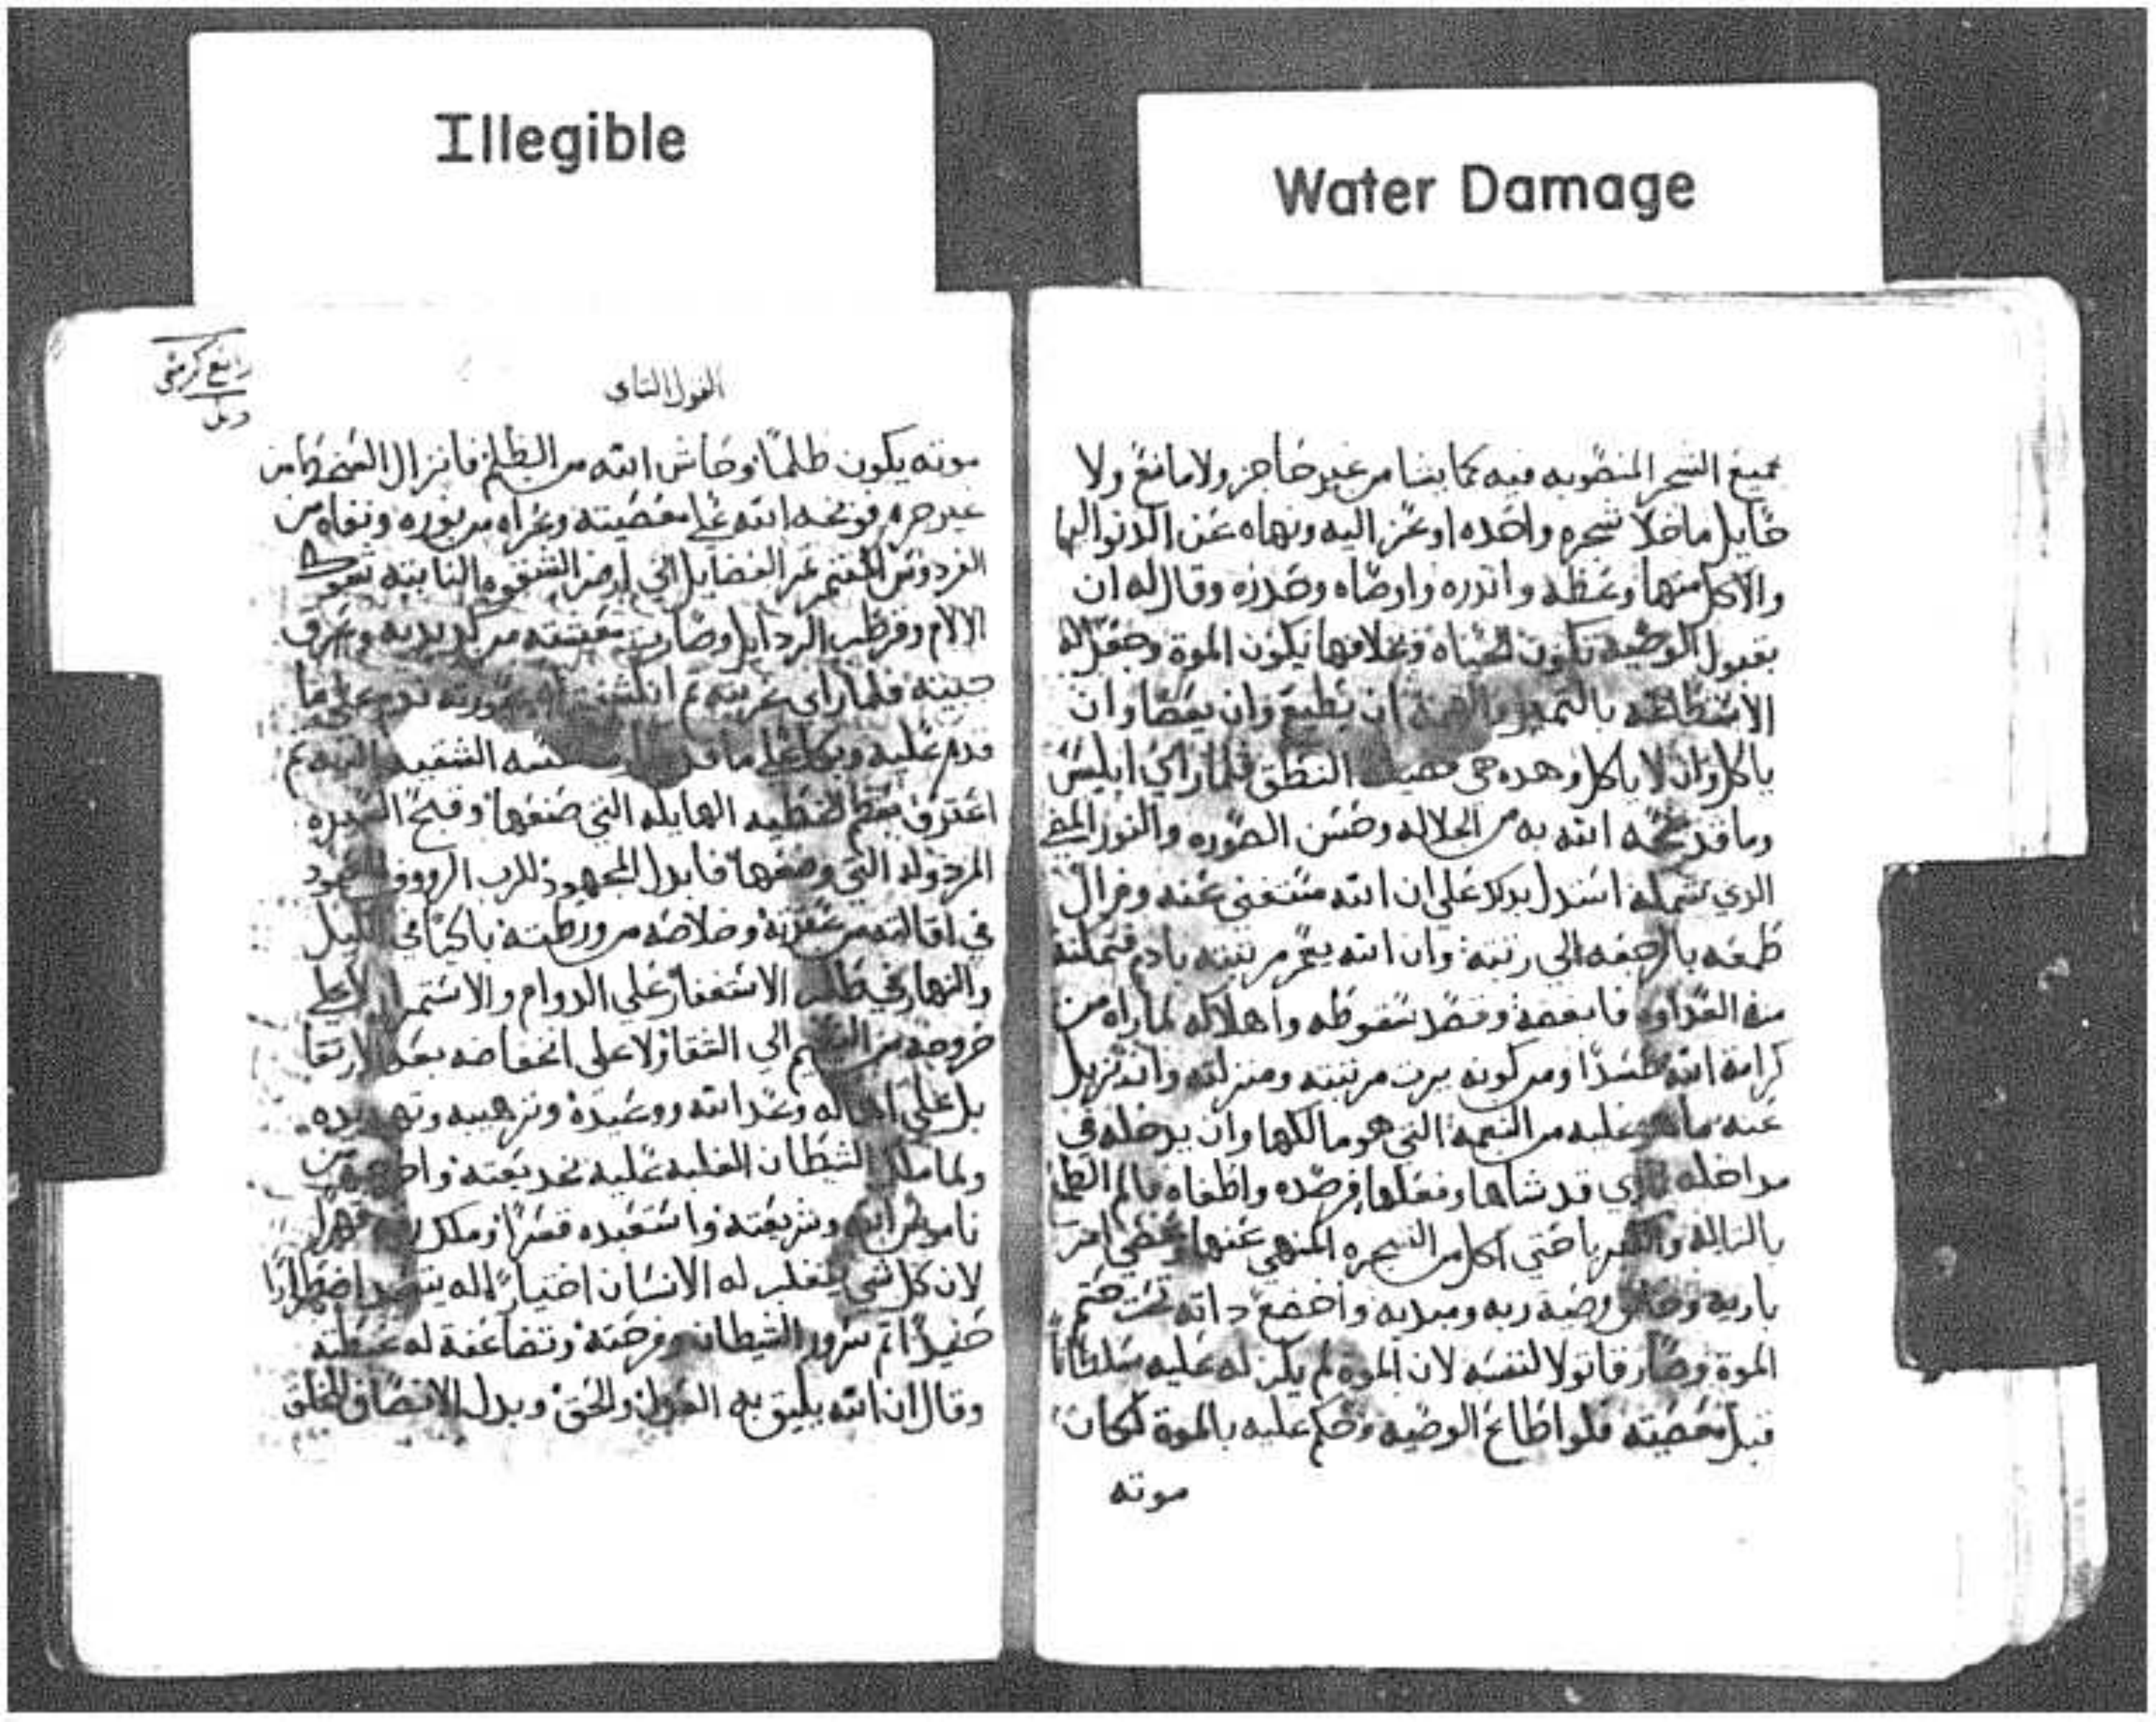 Illegible
Water Damage
جميع الشجر المنصوبه فيه كما يشا من غير حاجز ولا مانع ولا
حايل ما خلا شجره واحده اوعز اليه ونهاه عن الدنو اليها
والاكل منها وعظه واندره واوصاه وحدره وقال له ان
بقبول الوصيه تكون الحياه وبخلافها يكون الموة وجعل له
الاستطاعه بالتمييز ان يطيع وان يعصا وان
ياكل وان لا ياكل وهده هي النطق فلما راي ابليس
وما قد الله به من الجلاله وحسن الصوره والنور
الدي استدل بدلك علي ان الله مستغني عنه وزال
طمعه بالرجعه الي رتبته وان الله مرتبته بادم فتملته
منه العداوه فابغضه وقصد سقوطه واهلاكه لما راه من
كرامة الله حسدا ومن كونه يرت مرتبته ومنزلته وانه تزيل
عنه ما هو عليه من النعمه التي هو مالكها وان يدخله في
مداخله قد شاها وفعلها فرصده واطغاه
حتي اكل من الشجره المنهي عنها امر
باريه وصية ربه ومبديه واخضع داته تحت حتم
الموة وصار قاتولا لنفسه لان الموة لم يكن له عليه سلطانا
قبل معصيته فلو اطاع الوصيه وحكم عليه بالموة لكان
موته
القول التاي
موته يكون ظلما وحاش الله من الظلم فانزال
غير جرم فوبخه الله علي معصيته وعراه من نوره ونفاه من
الفردوس الفضايل الي ارض الشقوه النابته شوك
الالام وقرطب الردايل وصارت معيشته من كد يديه وعرق
جبينه فلما راي عريته ندم علي ما
قدم عليه وبكا علي ما الشقيه
اعترف بعظم الخطيه الهايله التي صنعها وقبح
المردوله التي وضعها فابدل المجهود للرب الرووف
في اقالته من وخلاصه من ورطته باكيا في الليل
والنهار طلب الاستغفار علي الدوام والاستمرار لا علي
خروجه من النعيم الي الشقا ولا علي انخفاضه بعد الارتقا
بل علي وعد الله ووعيده وترهيبه وتهديده
ولما الشيطان الغلبه عليه بخديعته من
ناموس الله وشريعته واستعبده قسرا وملك قهرا
لان كل شي له الانسان اختيارا له اضطرارا
حينيد اتم سرور الشيطان وفرحته وتضاعفة له غبطته
وقال ان الله يليق به العدل والحق وبدل الانصاف للخلق